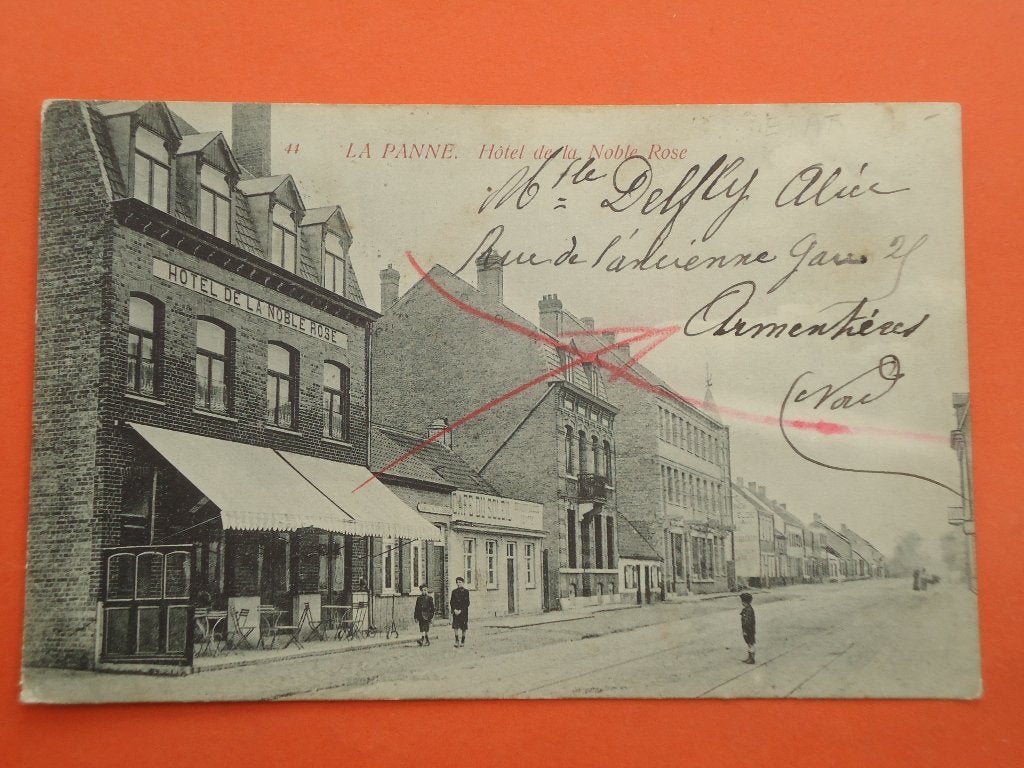 44 LA PANNE. Hôtel de la Noble Rose
Mlle Delfly Alice
Rue de l'ancienne Gare 25
Armentières
Nord
HOTEL DE LA NOBLE ROSE
CAFÉ DU SOLEIL